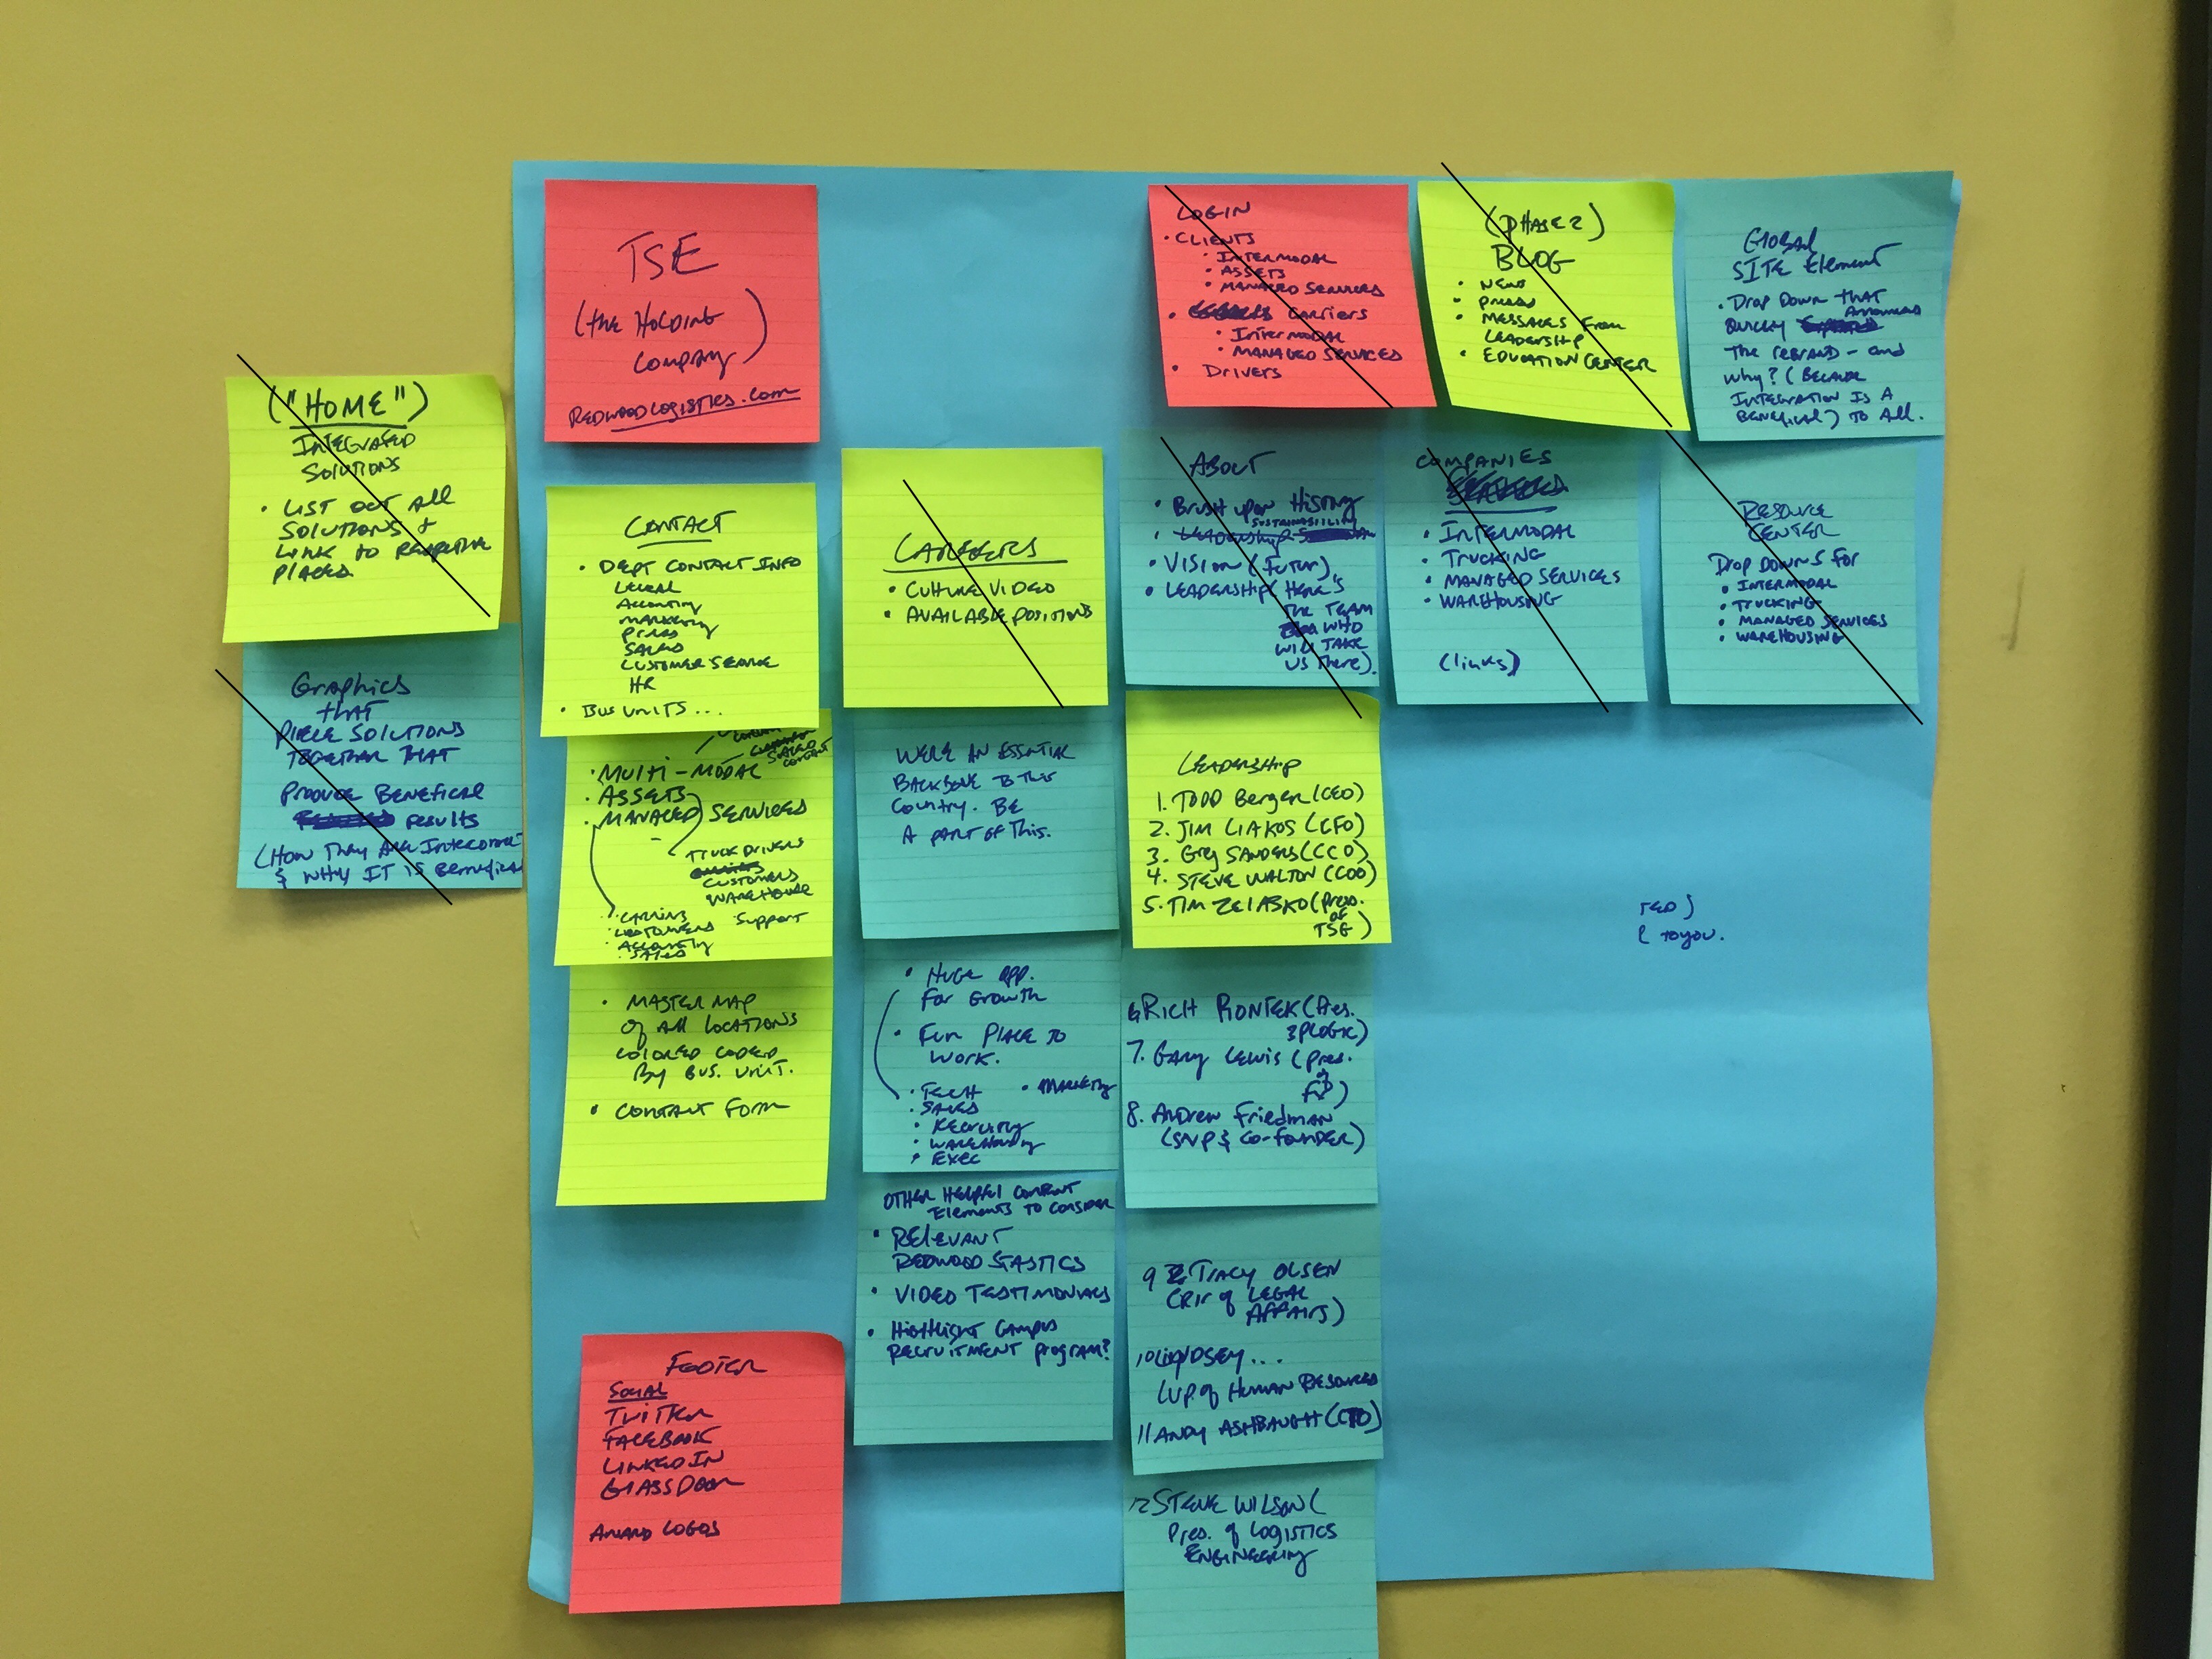 ("HOME")
INTEGRATED
SOLUTIONS
• LIST OUT ALL
SOLUTIONS +
LINK to RESPECTIVE
PLACES
Graphics
that
PIECE SOLUTIONS
TOGETHER THAT
PRODUCE BENEFICAL
results
(How They Are Interconnect
& WHY IT IS Beneficial
TSE
(the HOLDING
COMPANY)
REDWOODLOGISTICS.COM
CONTACT
• DEPT CONTACT INFO
LEGAL
Accounting
MARKETING
PRESS
SALES
CUSTOMER SERVICE
HR
• BUS UNITS...
SALES
CONTACT
• MULTI-MODAL
• ASSETS
• MANAGED SERVICES
TRUCK DRIVERS
CUSTOMERS
WAREHOUSE
Support
• CARRIERS
• CUSTOMERS
• Accounting
• SALES
• MASTER MAP
of All LOCATIONS
COLORED CODED
By BUS. UNIT.
• CONTACT FORM
FOOTER
SOCIAL
TWITTER
FACEBOOK
LINKED IN
GLASSDOOR
AWARD LOGOS
CAREERS
• CULTURE VIDEO
• AVAILABLE POSITIONS
WE'RE AN ESSENTIAL
BACKBONE TO THIS
COUNTRY. BE
A PART OF THIS.
• HUGE opp.
For Growth
• Fun PLACE TO
WORK.
• TECH • MARKETING
• SALES
• Recruiting
• WAREHOUSING
• EXEC
OTHER HELPFUL CONTENT
Elements TO CONSIDER
• RELEVANT
REDWOOD STASTICS
• VIDEO TESTIMONIALS
• HIGHLIGHT CAMPUS
RECRUITMENT program?
LOGIN
• CLIENTS
• INTERMODAL
• ASSETS
• MANAGED SERVICES
• CARRIERS
• Intermodal
• MANAGED SERVICES
• Drivers
ABOUT
• Brush upon History
SUSTAINABILITY
• Leadership
• Vision (Future)
• LEADERSHIP (Here's
THE TEAM
WHO
WILL TAKE
US There).
LEADERSHIP
1. TODD Berger (CEO)
2. JIM LIAKOS (CFO)
3. Greg SANDERS (CCO)
4. STEVE WALTON (COO)
5. TIM ZELASKO (Pres.
OF
TSE)
6 RICH PIONTEK (Pres.
3PLOGIC)
7. GARY LEWIS (Pres.
of
FD)
8. Andrew Friedman
(SVP & CO-FOUNDER)
9 TRACY OLSEN
(Dir of LEGAL
AFFAIRS)
10 LINDSEY...
(VP. of HUMAN RESOURCES
11 ANDY ASHBAUGH (CTO)
12 STEVE WILSON (
Pres. of LOGISTICS
ENGINEERING
(PHASE 2)
BLOG
• NEWS
• PRESS
• MESSAGES From
LEADERSHIP
• EDUCATION CENTER
COMPANIES
• INTERMODAL
• TRUCKING
• MANAGED SERVICES
• WAREHOUSING
(links)
Global
SITE Element
• Drop Down THAT
Announces
QUICKLY
THE rebrand - and
why? (BECAUSE
INTEGRATION IS A
BENEFICIAL) TO All.
RESOURCE
CENTER
DROP DOWNS FOR
• INTERMODAL
• TRUCKING
• MANAGED SERVICES
• WAREHOUSING
TED)
to you.